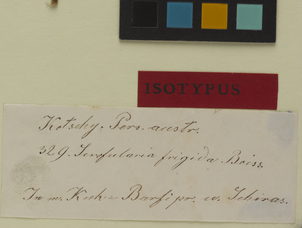 ISOTYPUS
Kotschy, Pers. austr.
329. Scrofularia frigida Boiss.
In m. Kuh-Barfi pr. u. Schiras.